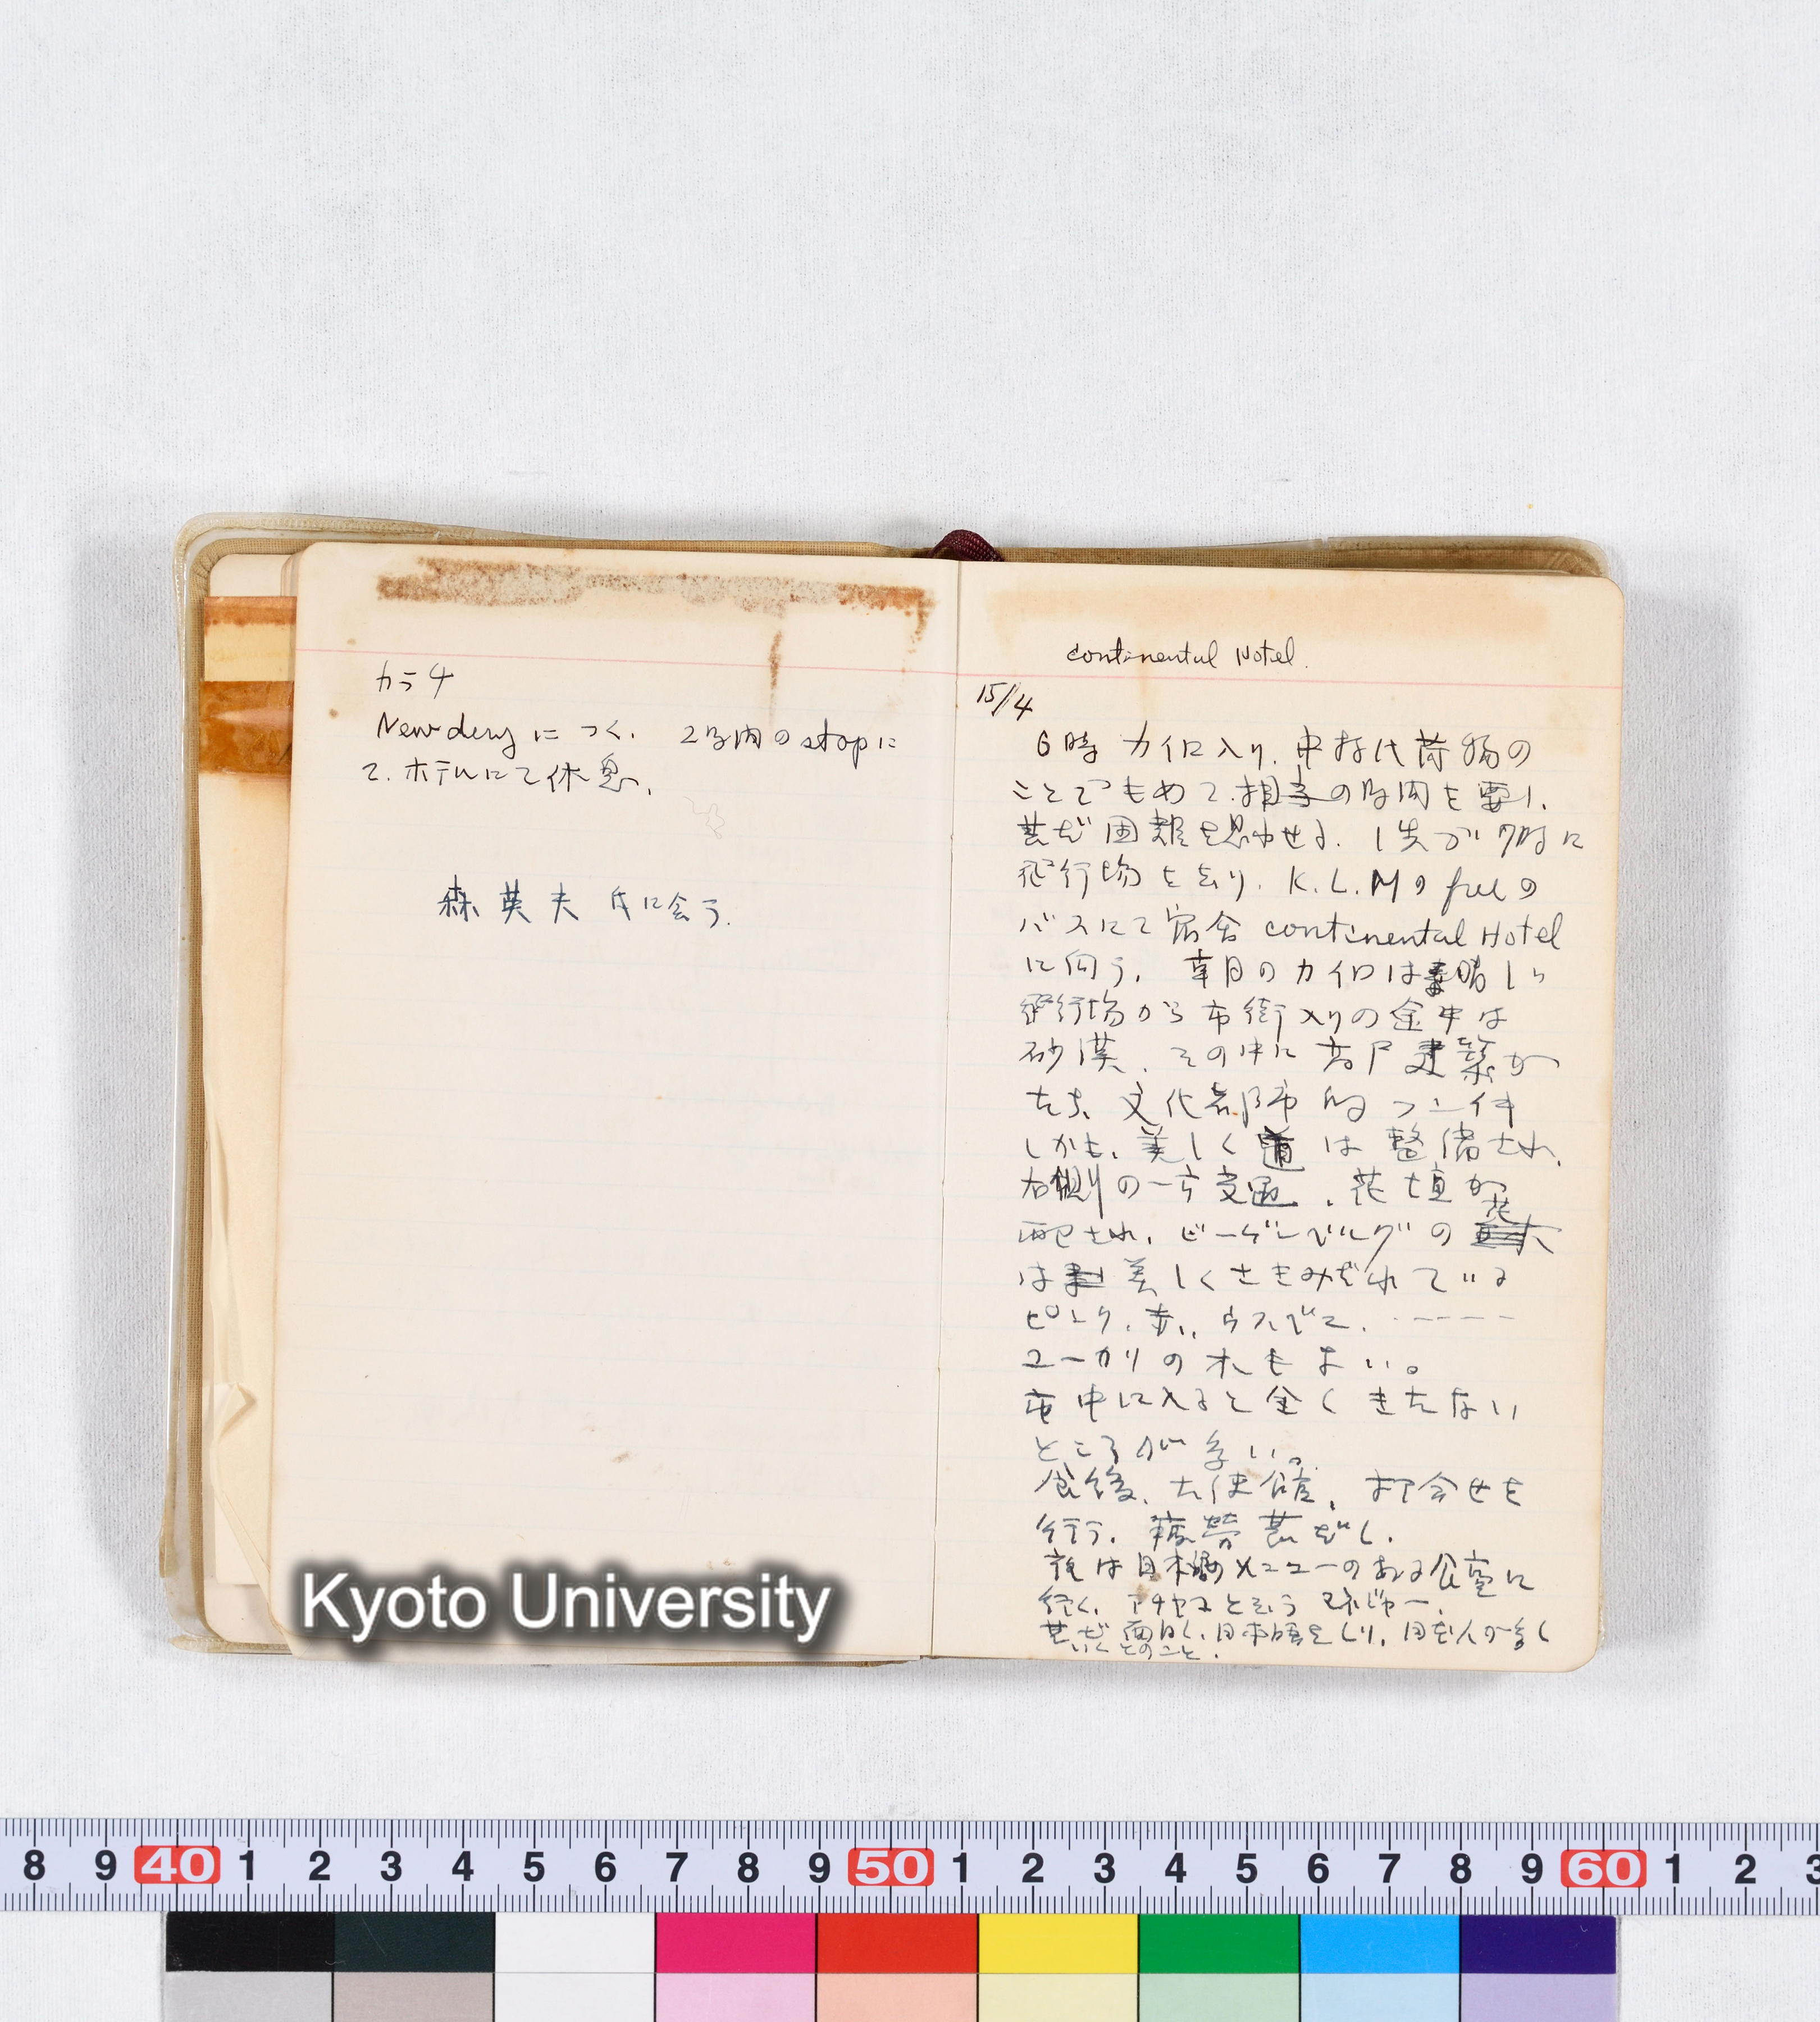 カラチ
New delhy につく. 2時間のstopに
て. ホテルにて休息.
森 英夫 氏に会う.
continental Hotel.
15/4
6時 カイロ入り. 荷物の
ことでもめて. の時間を要し.
甚だ困難を思わせる. 7時に
飛行場を去り. K.L.Mのfreeの
バスにて宿舎 continental Hotel
に向う. カイロは素晴しい
飛行場から市街入りの途中は
砂漠. その中に 高層建築が
たち、文化都市的
しかも、美しく 道 は 整備され.
右側の一方交通. 花壇が
配され. ビーゲンベルグの 花
は 美しくさきみだれている
ピンク. 赤. ウスベニ. -----
ユーカリの木もよい。
市中に入ると全くきたない
ところが多い。
食後. 大使館. 打合せを
行う. 疲労甚だし.
夜は日本 メニューのある食堂に
行く. と云う マネジャー.
甚だ面白く. 日本語をしり. 日本人が多く
いくとのこと.
Kyoto University
8 9 40 1 2 3 4 5 6 7 8 9 50 1 2 3 4 5 6 7 8 9 60 1 2 3